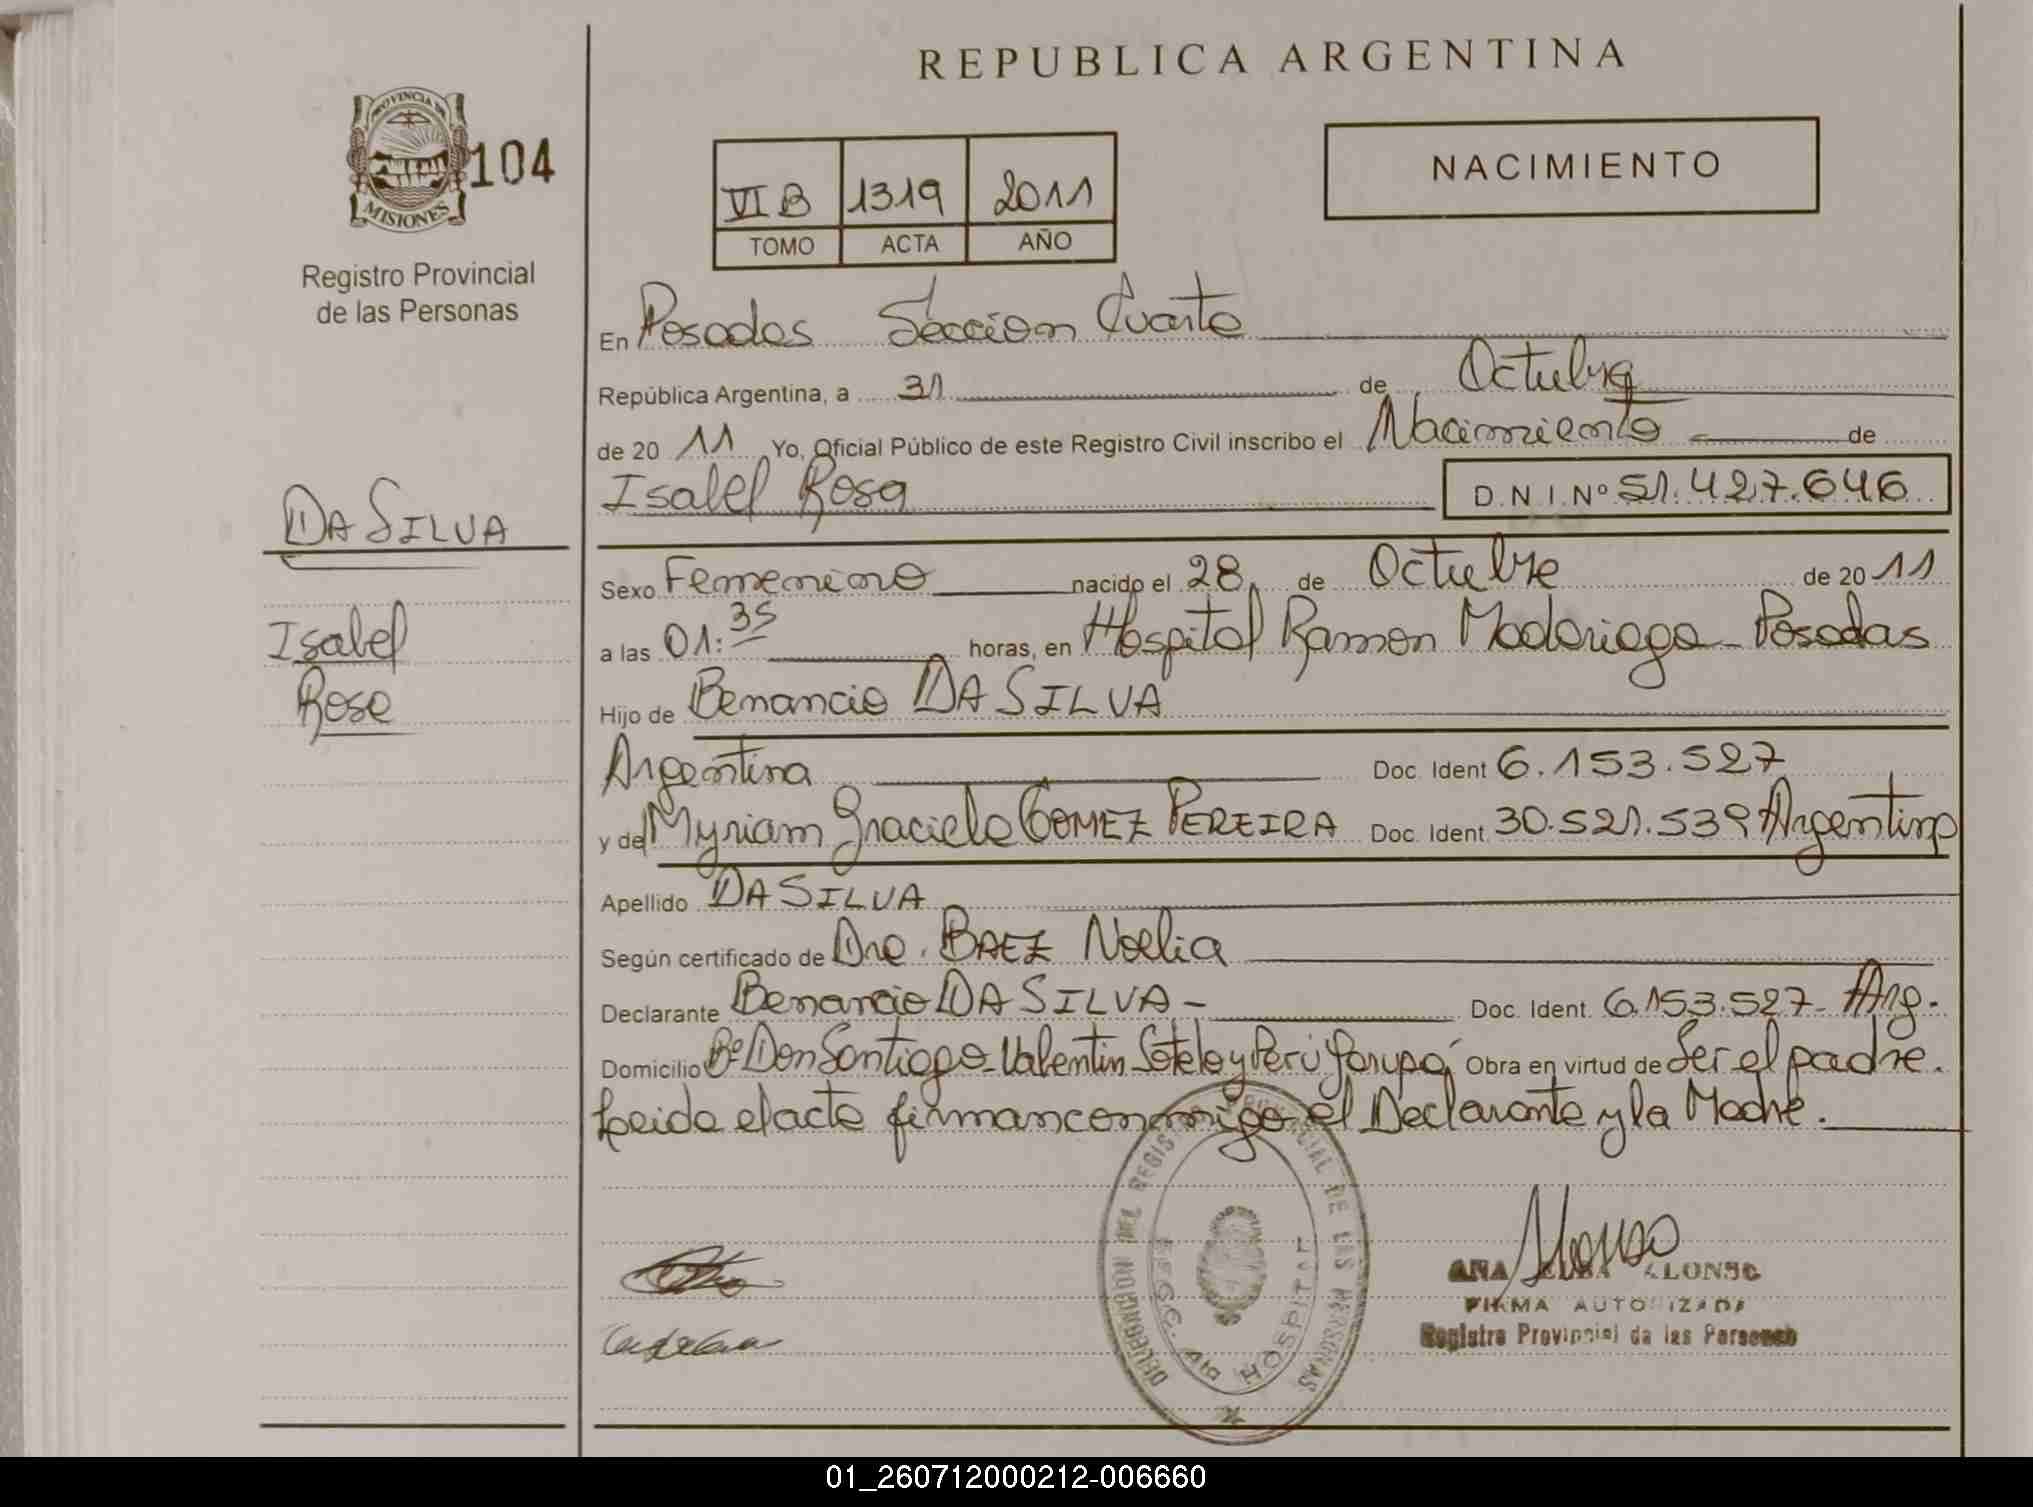 REPUBLICA ARGENTINA
PROVINCIA DE
MISIONES
104
Registro Provincial
de las Personas
VI B 1319 2011
TOMO ACTA AÑO
NACIMIENTO
En Posadas Sección Cuarta
República Argentina, a 31 de Octubre
de 20 11 Yo, Oficial Público de este Registro Civil inscribo el Nacimiento de
Isabel Rosa D.N.I.Nº 51.427.646
DA SILVA
Isabel
Rosa
Sexo Femenino nacido el 28 de Octubre de 20 11
a las 01:35 horas, en Hospital Ramon Madariaga - Posadas
Hijo de Benancio DA SILVA
Argentina Doc. Ident 6.153.527
y de Myriam Graciela GOMEZ PEREIRA Doc. Ident. 30.521.539 Argentina
Apellido DA SILVA
Según certificado de Dra. BAEZ Noelia
Declarante Benancio DA SILVA - Doc. Ident. 6.153.527 - Arg.
Domicilio Bº Don Santiago - Valentin Sotelo y Perú Garupá Obra en virtud de Ser el padre.
Leida el acta firman conmigo el Declarante y la Madre.
DELEGACION DEL REGISTRO PROVINCIAL DE LAS PERSONAS
SECC. 4ta HOSPITAL
Alonso
ANA ALONSO
FIRMA AUTORIZADA
Registro Provincial de las Personas
01_260712000212-006660